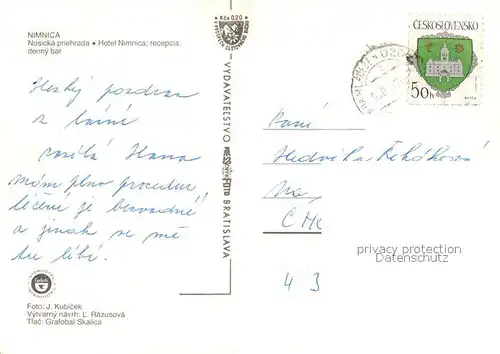 NIMNICA
Nosická priehrada • Hotel Nimnica; recepcia,
denný bar
Kčs 0,20
ČESKOSLOVENSKO
50h
VYDAVATEĽSTVO
PRESSFOTO
BRATISLAVA
Hezký pozdrav
z lázní
zasílá Hana
Mám plno procedur
léčení je bezvadné
a jinak se mě
tu líbí.
Paní
Na,
privacy protection
Datenschutz
4 3
Foto: J. Kubíček
Výtvarný návrh: Ľ. Rázusová
Tlač: Grafobal Skalica